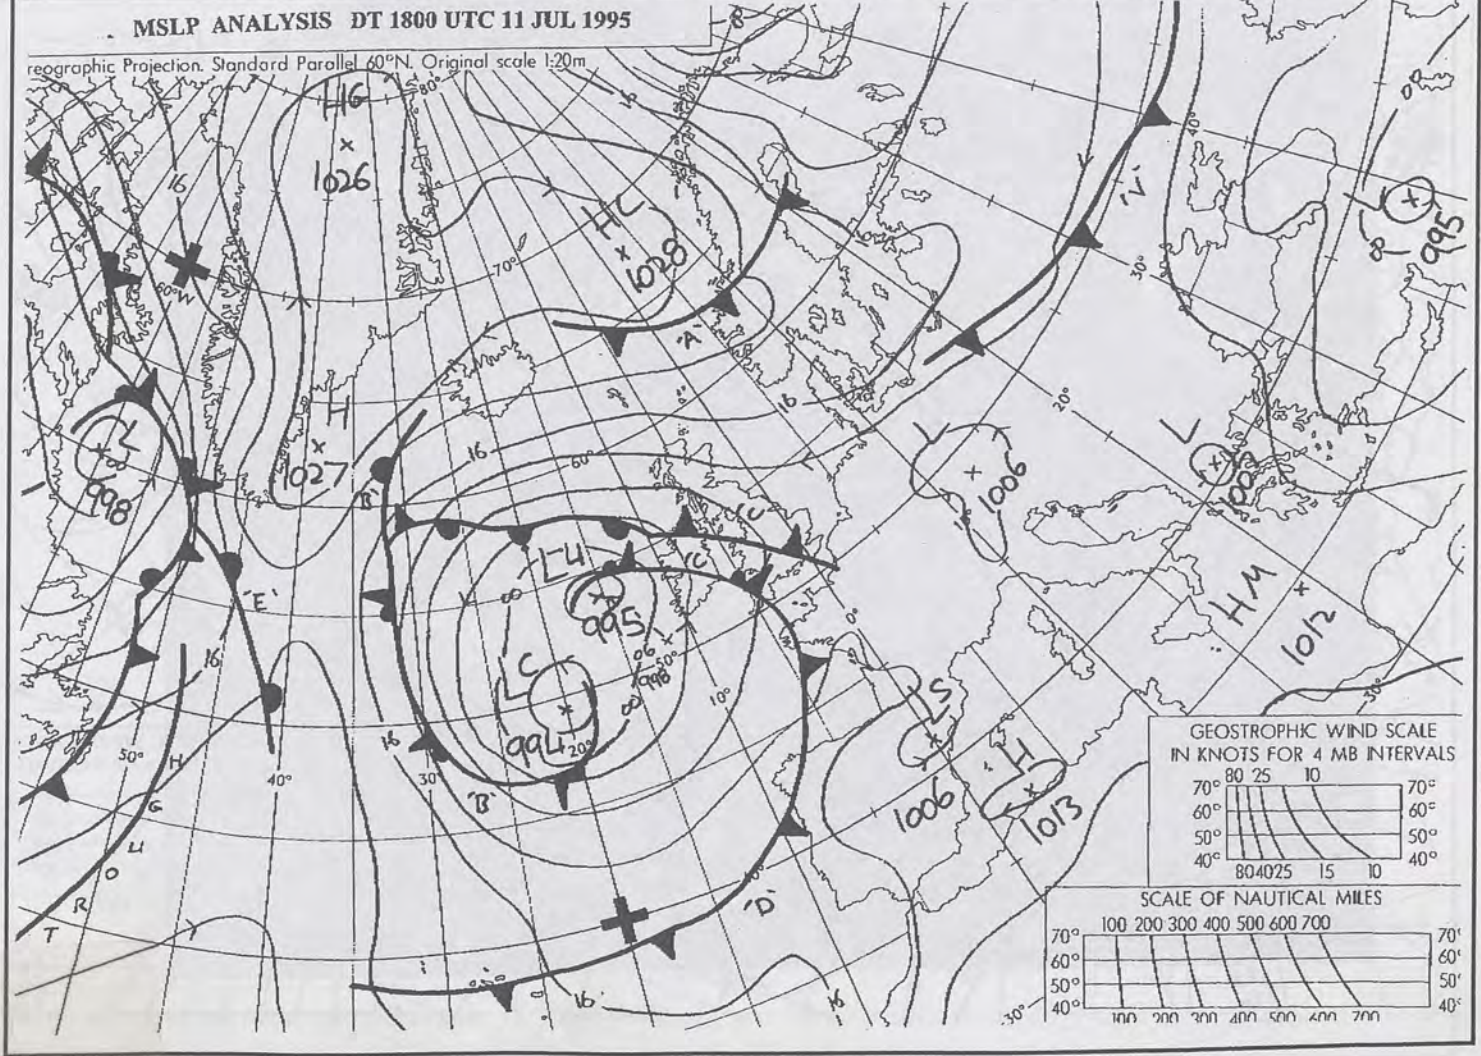 MSLP ANALYSIS DT 1800 UTC 11 JUL 1995
reographic Projection. Standard Parallel 60°N. Original scale 1:20m
8
80°
16
HG
1026
16
HL
1028
70°
60°W
'A'
40°
'V'
30°
20°
995
8
H
1027
L
998
16
16
60°
'B'
L
1006
L
1005
HM
1012
'C'
'C'
LU
995
8
'E'
16
LC
994
20°
50°
998
10°
0°
8
LS
1006
H
1013
50°
40°
30°
16
'B'
'D'
TROUGH
16
16
30°
30°
GEOSTROPHIC WIND SCALE
IN KNOTS FOR 4 MB INTERVALS
80 25 10
70° 70°
60° 60°
50° 50°
40° 40°
80 40 25 15 10
SCALE OF NAUTICAL MILES
100 200 300 400 500 600 700
70° 70°
60° 60°
50° 50°
40° 40°
100 200 300 400 500 600 700